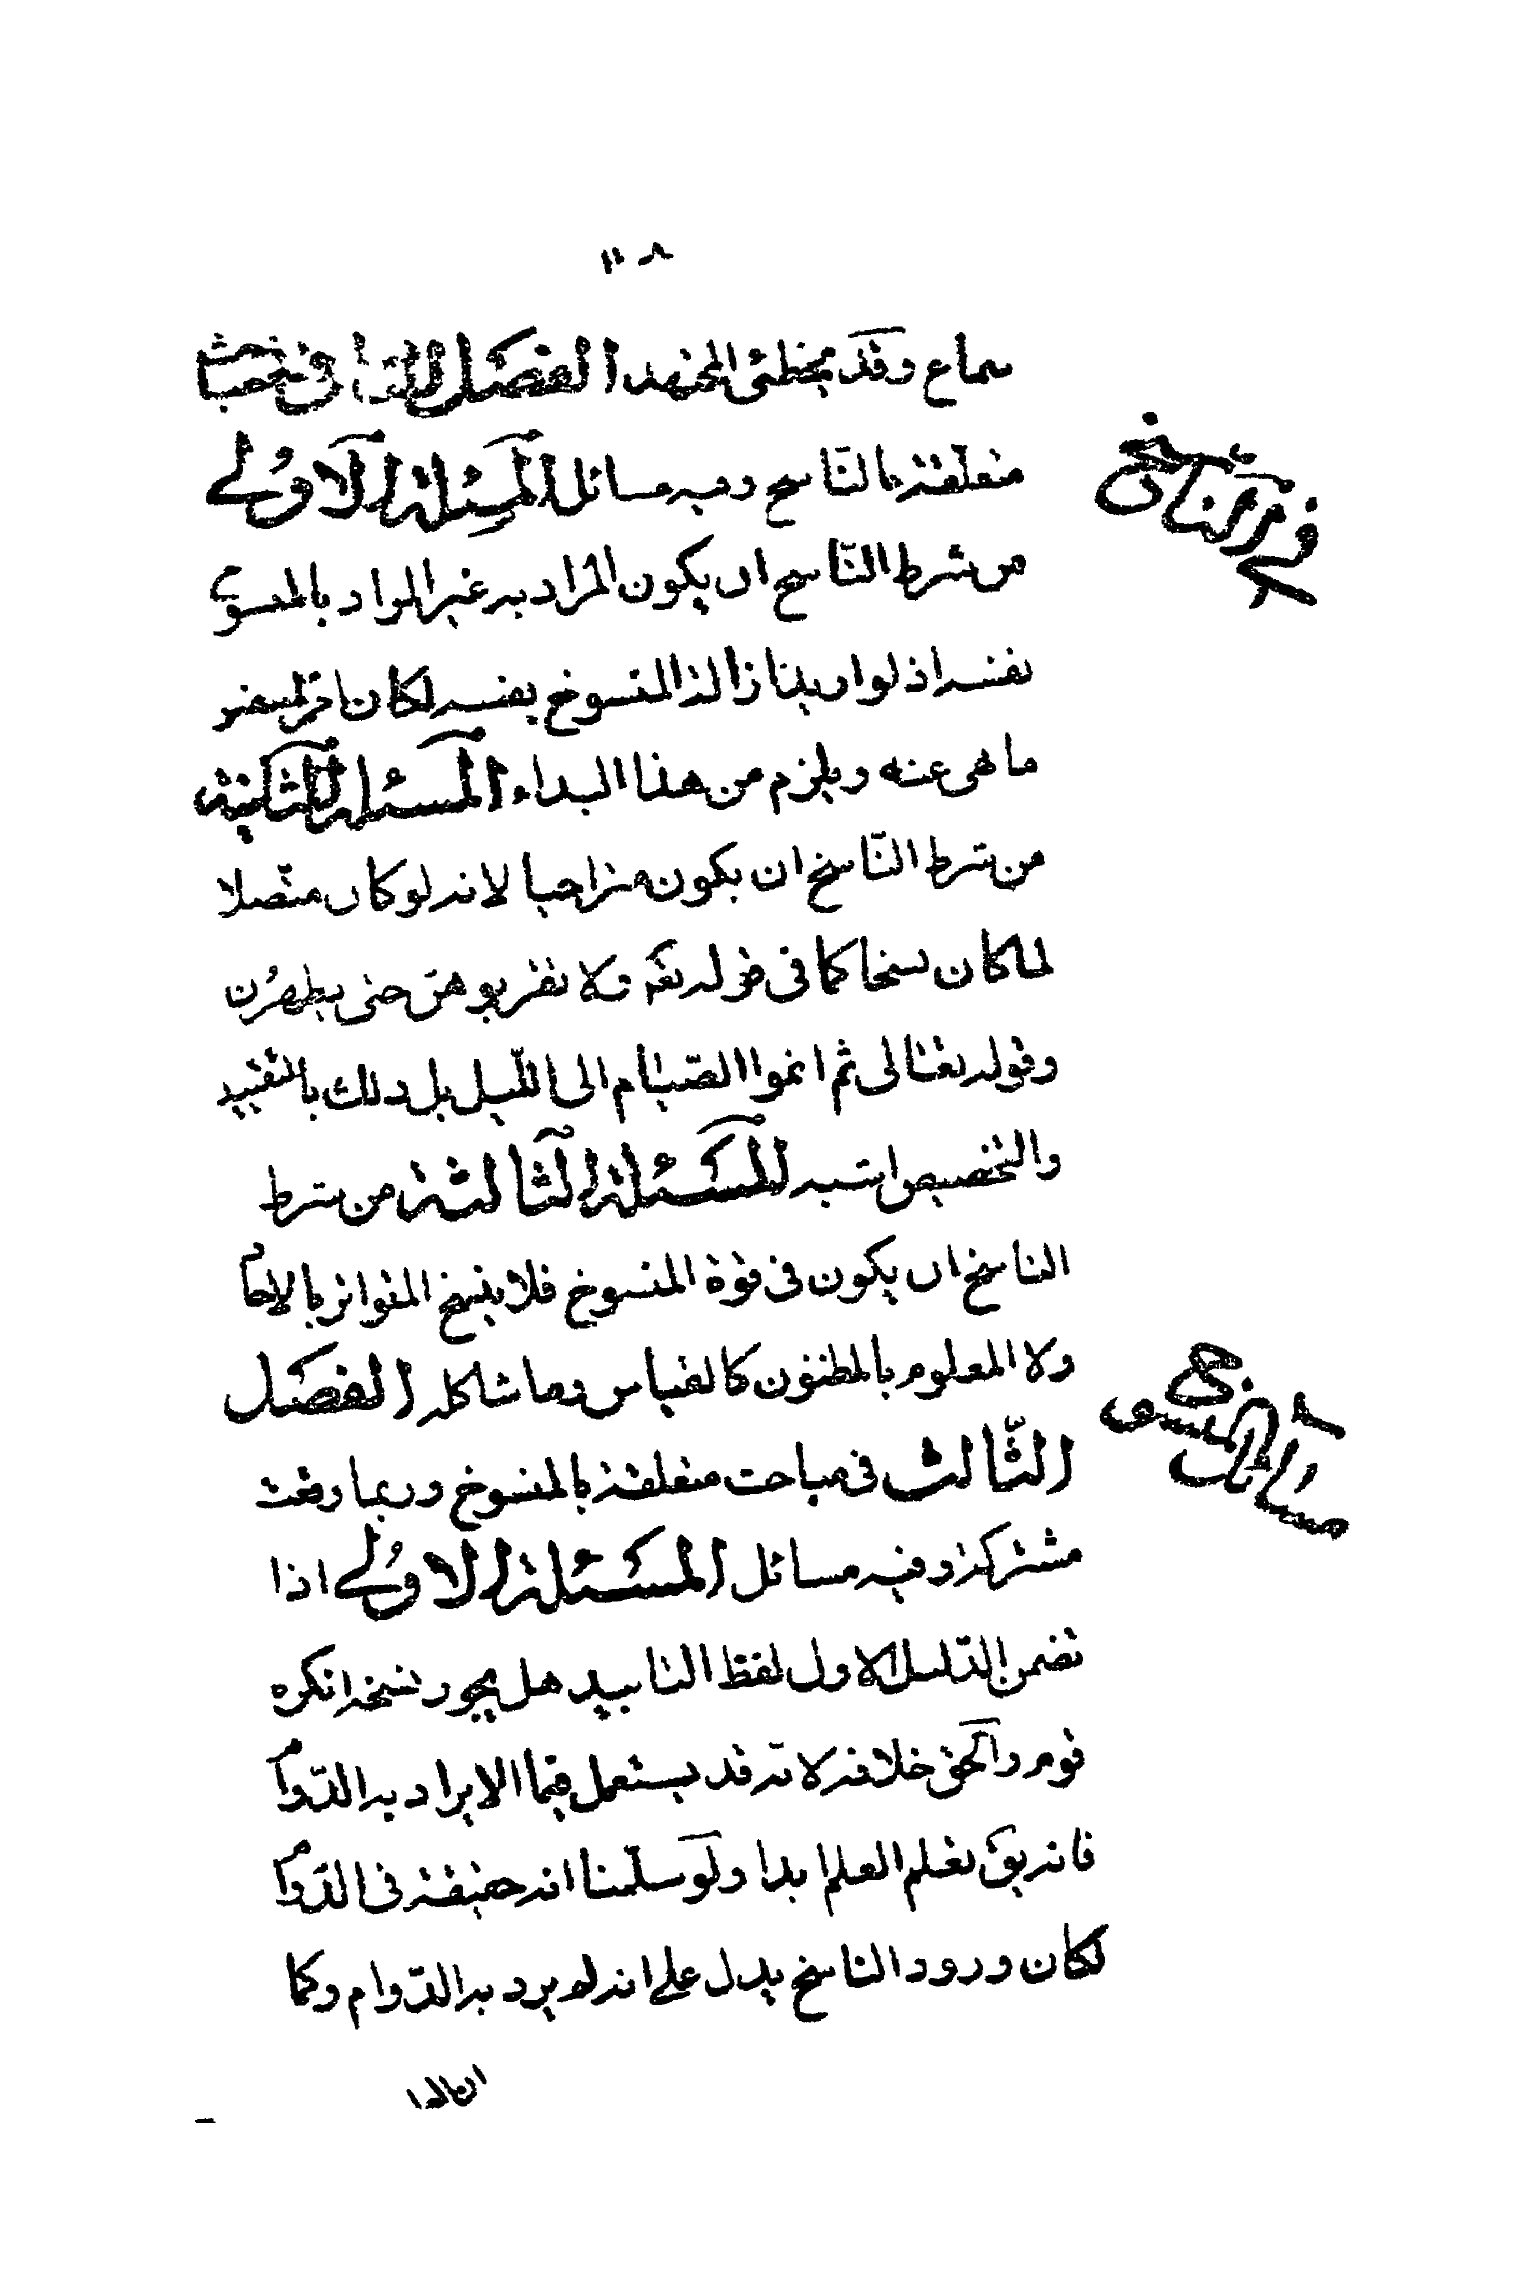 سماع وقد يخطئ المجتهد الفصل الثانى في مباحث
متعلقة بالناسخ وفيه مسائل المسئلة الاولى
من شرط الناسخ ان يكون المراد به غير المراد بالمنسوخ
نفسه اذ لو اريد ازالة المنسوخ بنفسه لكان
ما نهى عنه ويلزم من هذا البداء المسئلة الثانية
من شرط الناسخ ان يكون متراخيا لانه لو كان متصلا
لما كان نسخا كما فى قوله تعالى ولا تقربوهن حتى يطهرن
وقوله تعالى ثم اتموا الصيام الى الليل بل ذلك بالتقييد
والتخصيص اشبه المسئلة الثالثة من شرط
الناسخ ان يكون فى قوة المنسوخ فلا ينسخ المتواتر بالاحاد
ولا المعلوم بالمظنون كالقياس وما شاكله الفصل
الثالث فى مباحث متعلقة بالمنسوخ وربما وقعت
مشتركة وفيه مسائل المسئلة الاولى اذا
تضمن الدليل الاول لفظ التابيد هل يجوز نسخه انكره
قوم والحق خلافه لانه قد يستعمل فيما لا يراد به الدوام
فانه يق تعلم العلم ابدا ولو سلمنا انه حقيقة فى الدوام
لكان ورود الناسخ يدل على انه لم يرد به الدوام وكما